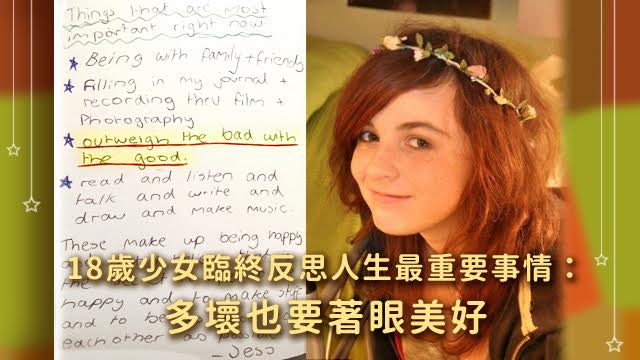 Things that are most
important right now
Being with family + friends
Filling in my journal +
recording thru film +
Photography
outweigh the bad with
the good.
read and listen and
talk and write and
draw and make music.
These make up being happy
18歲少女臨終反思人生最重要事情：
happy and to make stuff
多壞也要著眼美好
and to be
each other as
- Jess